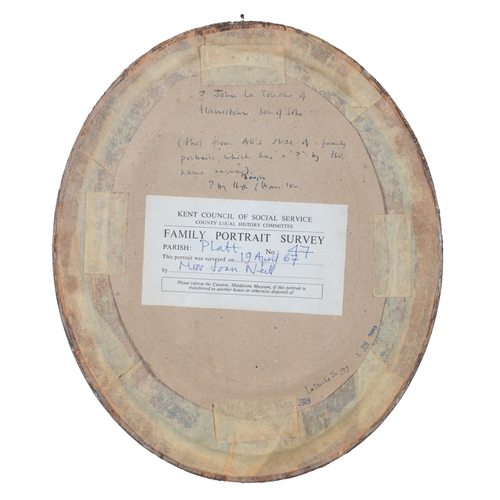 ? John La Touche of
Harristown. son of John
(this from AD's slide of family
portraits, which has a "?" by the
name anyway)
? by Hugh
KENT COUNCIL OF SOCIAL SERVICE
COUNTY LOCAL HISTORY COMMITTEE
FAMILY PORTRAIT SURVEY
PARISH: Platt No: 47
This portrait was surveyed on 19 April 67
by Miss Joan Neill
Please inform the Curator, Maidstone Museum, if this portrait is
transferred to another house or otherwise disposed of.